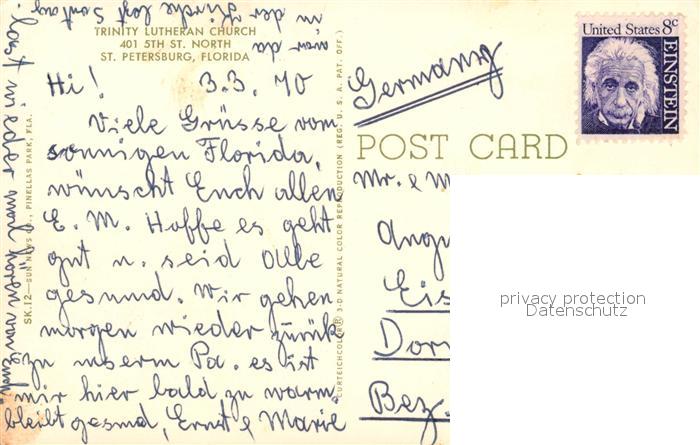 TRINITY LUTHERAN CHURCH
401 5TH ST. NORTH
ST. PETERSBURG, FLORIDA
Hi! 3.3.70
Viele Grüsse vom
sonnigen Florida,
wünscht Euch allen
E. M. Hoffe es geht
gut u. seid alle
gesund. Wir gehen
morgen wieder zurück
zu unserm Pa. es ist
mir hier bald zu warm
bleibt gesund, Ernst & Marie
lasst wieder mal hören von Euch.
war da
in der Kirche last Sontag
SK.12—SUN NEWS CO., PINELLAS PARK, FLA.
CURTEICHCOLOR® 3-D NATURAL COLOR REPRODUCTION (REG. U.S.A. PAT. OFF.)
Germany
POST CARD
United States 8c
EINSTEIN
Mr. & M
Augu
Eis
Dor
Bez.
privacy protection
Datenschutz